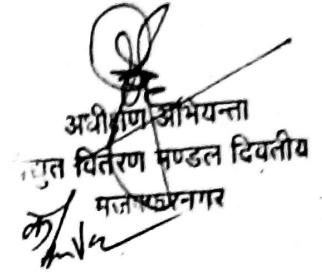 अधीक्षण अभियन्ता
विद्युत वितरण मण्डल दिवतीय
मुजफ्फरनगर